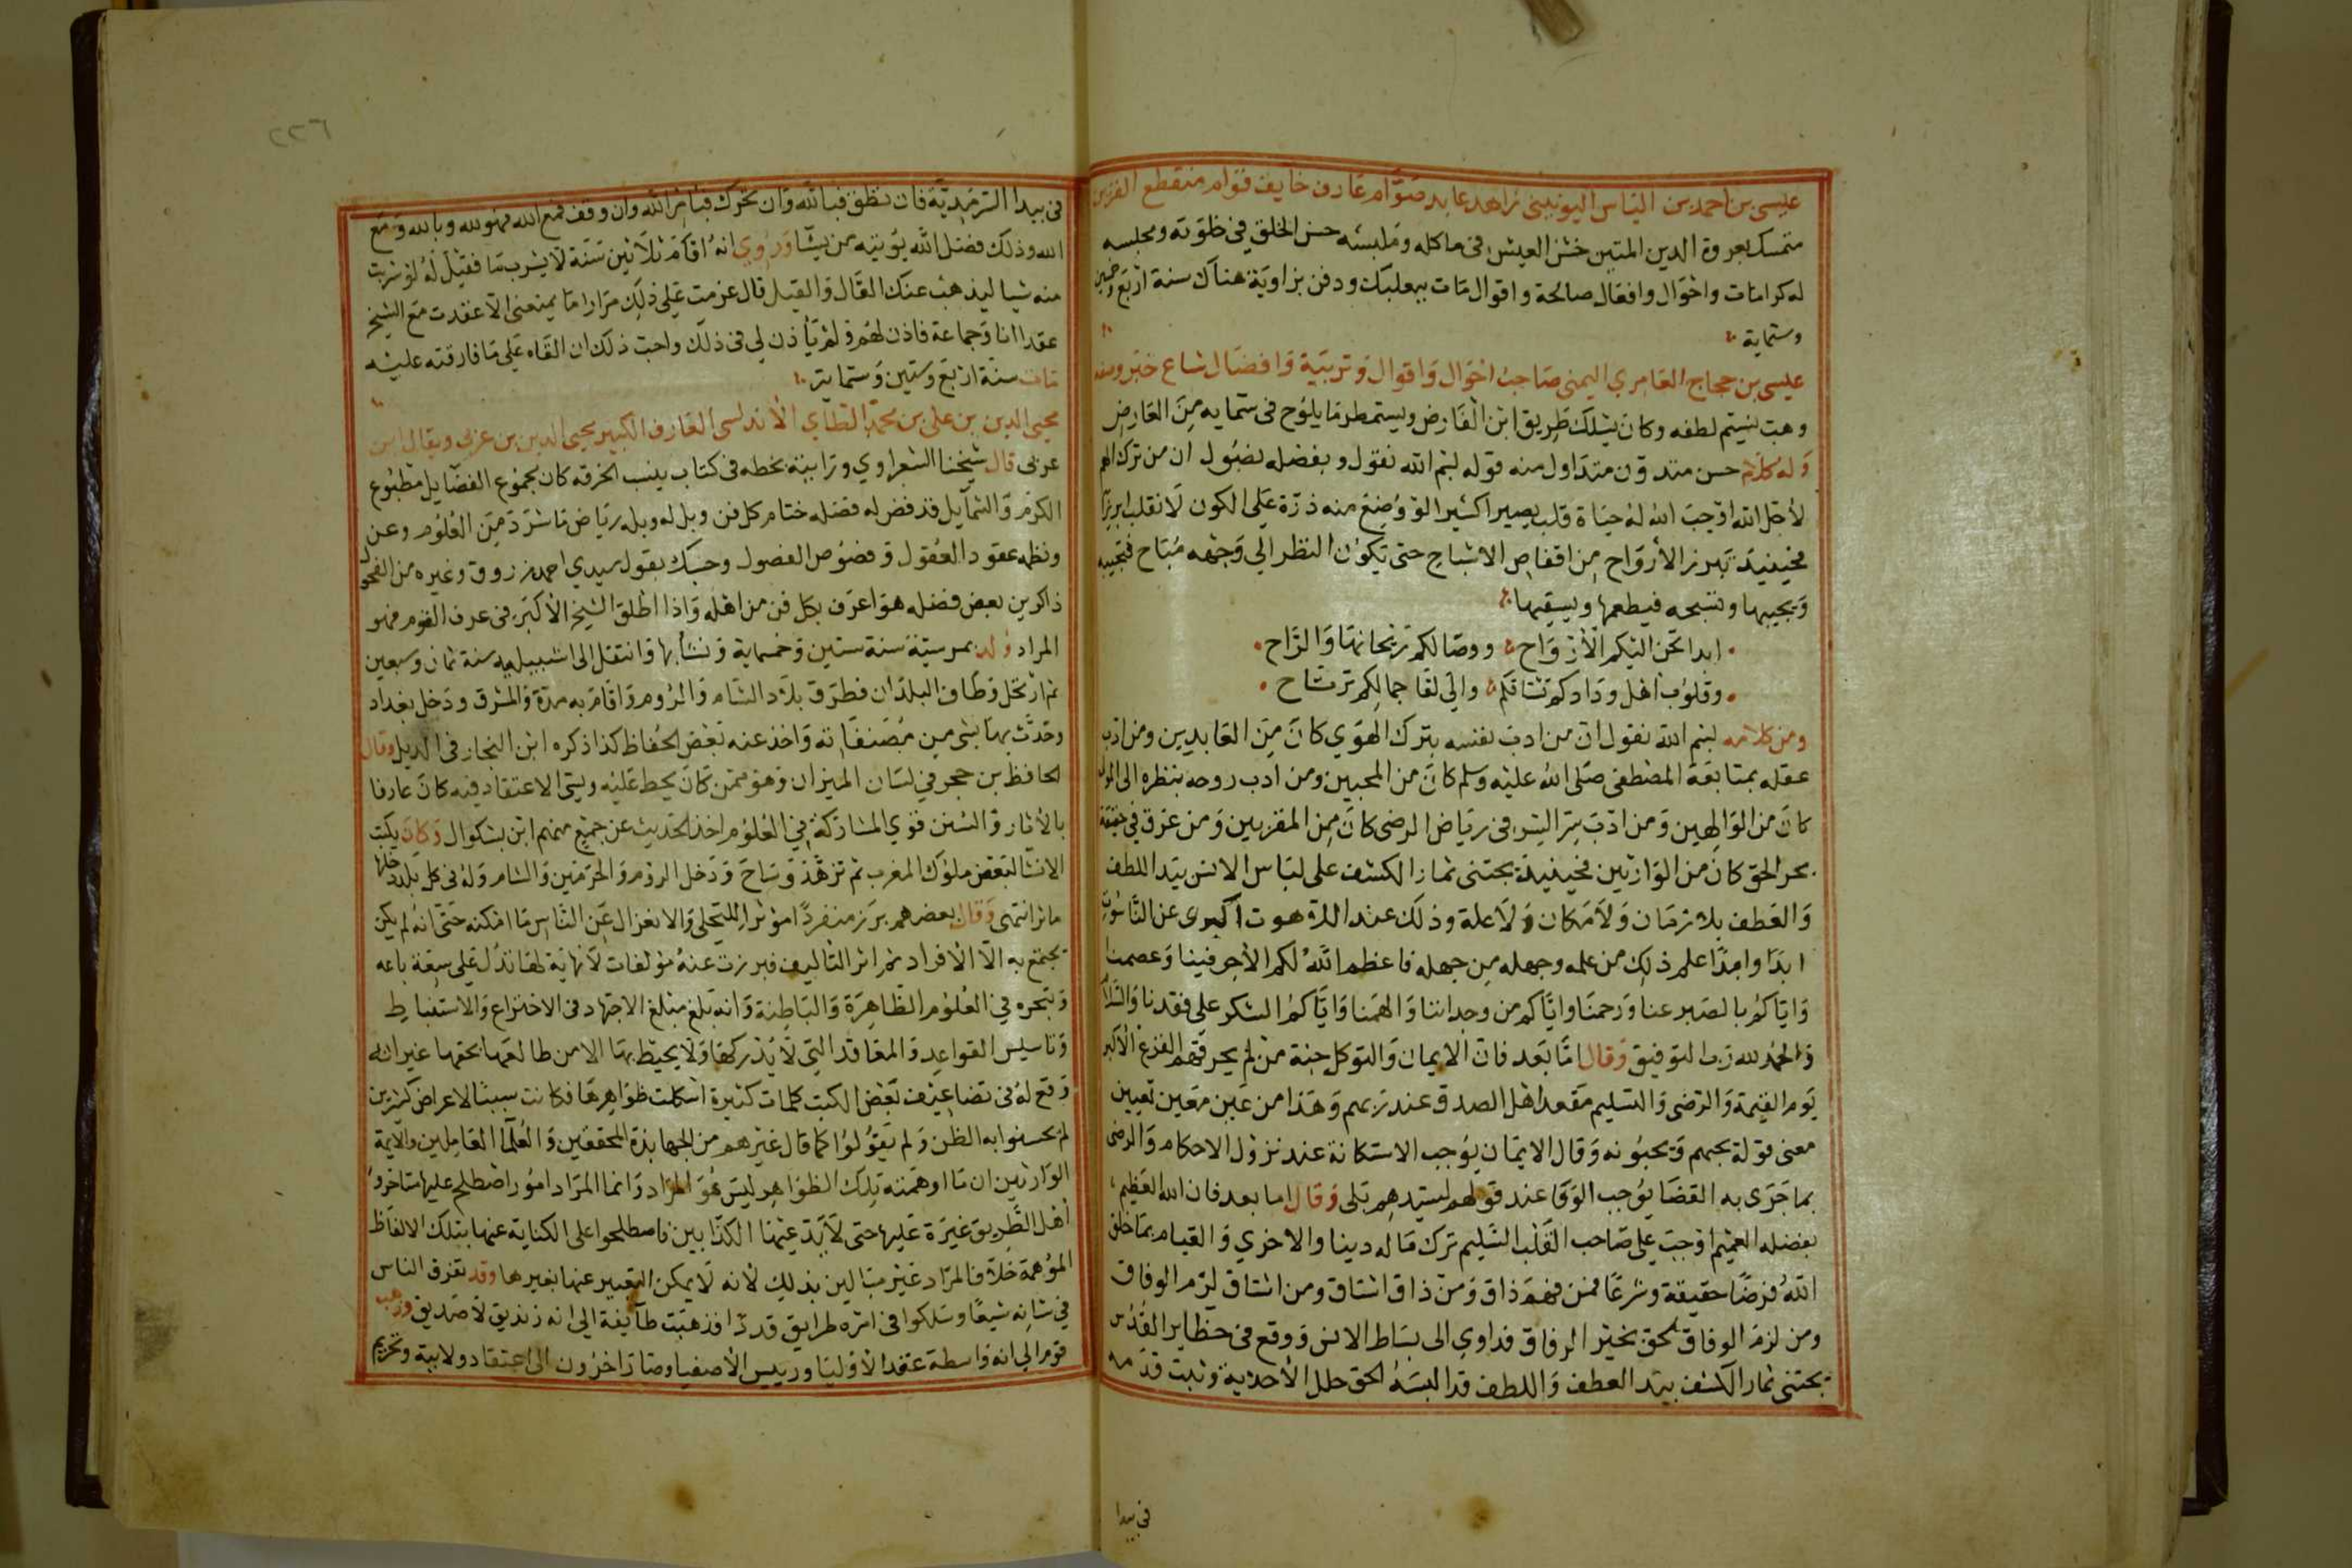 عيسى بن احمد بن الياس اليونيني زاهد عابد صوام عارف خايف قوام منقطع القرين
متمسك بعروة الدين المتين خشن العيش في ماكله وملبسه حسن الخلق في خلوته ومجلسه
له كرامات واحوال وافعال صالحة واقوال مات ببعلبك ودفن بزاوية هناك سنة اربع وخمسين
وستماية
عيسى بن حجاج العامري اليمني صاحب احوال واقوال وتربية وافضال شاع خبره ومنه
وهبت نسيم لطفه وكان يسلك طريق ابن الفارض ويستمطر ما يلوح في سمايه من العارض
وله كلام حسن متداول منه قوله بسم الله نقول وبفضله نصول ان من ترك
لاجل الله اوجب الله له حياة قلب يصير اكثيرا لو وضع منه ذرة على الكون لانقلب ابريزا
فحينيذ تبرز الأرواح من اقفاص الاشباح حتى يكون النظر الي وجهه مباح فتجيبه
ويجيبها وتسبحه فيطعمها ويسقيها
ابدا تحن اليكم الأرواح ووصالكم ريحانها والراح
وقلوب اهل ودادكم تشتاقكم والي لقا جمالكم ترتاح
ومن كلامه بسم الله نقول ان من ادب نفسه بترك الهوي كان من العابدين ومن ادب
عقله بمتابعة المصطفى صلى الله عليه وسلم كان من المحبين ومن ادب روحه بنظره الى المولى
كان من الوالهين ومن ادب سر السر في رياض الرضى كان من المقربين ومن غرق في حقيقة
بحر الحق كان من الوارثين فحينيذ يجتني ثمار الكشف على لباس الانس بيد اللطف
والعطف بلا زمان ولا مكان ولا علة وذلك عند اللاهوت عن الناسوت
ابدا وامدا علم ذلك من علمه وجهله من جهله فاعظم الله لكم الأجر فينا وعصمنا
واياكم بالصبر عنا ورحمنا واياكم من وجداننا والهمنا واياكم الشكر على فقدنا والسلام
والحمد لله رب التوفيق وقال اما بعد فان الايمان والتوكل جنة من لم يحرقهم الفزع الأكبر
يوم القيمة والرضى والتسليم مقعد اهل الصدق عند ربهم وهذا من عين معين تعيين
معنى قوله يحبهم ويحبونه وقال الايمان يوجب الاستكانة عند نزول الاحكام والرضى
بما جرى به القضا يوجب الوفا عند قولهم لسيدهم بلى وقال اما بعد فان الله العظيم
بفضله العميم اوجب على صاحب القلب السليم ترك ماله دينا والاخري والقيام بما خلق
الله فرضا حقيقة وشرعا فمن فهم ذاق ومن ذاق اشتاق ومن اشتاق لزم الوفاق
ومن لزم الوفاق لحق بخير الرفاق فداوي الى بساط الانس ووقع في حظاير القدس
يجتني ثمار الكشف بيد العطف واللطف قد البسه الحق حلل الأحدية وثبت قدمه
في بيدا
٢٢٦
في بيدا السرمدية فان نطق فبالله وان تحرك فبامر الله وان وقف فمع الله فهو لله وبالله ومع
الله وذلك فضل الله يؤتيه من يشا وروي انه اقام ثلاثين سنة لا يشرب ما فقيل له لو شربت
منه شيا ليذهب عنك القال والقيل قال عزمت على ذلك مرارا ما يمنعني الا عقدت مع الشيخ
عقدا انا وجماعة فاذن لهم ولم يأذن لي في ذلك واحب ذلك ان القاه على ما فارقته عليه
مات سنة اربع وستين وستماية
محيى الدين بن على بن محمد الطاي الأندلسى العارف الكبير محيى الدين بن عربي ويقال ابن
عربي قال شيخنا الشعراوي ورايته بخطه في كتاب ينسب الخرقه كان مجموع الفضايل مطبوع
الكرم والشمايل قد فض له فضله ختام كل فن وبل له وبله رياض ما شرد من العلوم وعن
ونظمه عقود العقول وفصوص الفصول وحسبك بقول سيدي احمد زروق وغيره من الفحول
ذاكرين بعض فضله هو اعرف بكل فن من اهله واذا اطلق الشيخ الأكبر في عرف القوم فهو
المراد ولد بمرسية سنة ستين وخمسماية ونشا بها وانتقل الى اشبيليه سنة ثمان وسبعين
ثم ارتحل وطاف البلدان فطرق بلاد الشام والروم واقام به مدة والمشرق ودخل بغداد
وحدث بها بشى من مصنفاته واخذ عنه بعض الحفاظ كذا ذكره ابن النجار في الذيل وقال
الحافظ بن حجر في لسان الميزان وهو ممن كان يحط عليه ويسئ الاعتقاد فيه كان عارفا
بالأثار والسنن قوي المشاركة في العلوم اخذ الحديث عن جميع منهم ابن بشكوال وكان يكتب
الانشا لبعض ملوك المغرب ثم تزهد وساح ودخل الروم والحرمين والشام وله في كل بلد دخلها
ماثر انتهى وقال بعضهم برز منفردا مؤثرا للتخلي والانعزال عن الناس ما امكنه حتى انه لم يكن
يجتمع به الا الأفراد ثم اثر التاليف فبرزت عنه مؤلفات لا نهاية لها تدل على سعة باعه
وتبحره في العلوم الظاهرة والباطنة وانه بلغ مبلغ الاجتهاد في الاختراع والاستنباط
وتاسيس القواعد والمعاقد التي لا يدركها ولا يحيط بها الا من طالعها بحقها غير انه
وقع له في تضاعيف بعض الكتب كلمات كثيرة اشكلت ظواهرها فكانت سببا لاعراض كثيرين
لم يحسنوا به الظن ولم يقولوا كما قال غيرهم من الجهابذة المحققين والعلما العاملين والايمة
الوارثين ان ما اوهمته تلك الظواهر ليس هو المراد وانما المراد امور اصطلح عليها متاخروا
أهل الطريق غيرة عليها حتى لا يدعيها الكذابين فاصطلحوا على الكناية عنها بتلك الالفاظ
الموهمة خلاف المراد غير مبالين بذلك لأنه لا يمكن التعبير عنها بغيرها وقد تفرق الناس
في شانه شيعا وسلكوا في امره طرايق قددا فذهبت طايفة الى انه زنديق لا صديق وذهب
قوم الي انه واسطة عقد الأوليا ورييس الأصفيا وصار اخرون الى اعتقاد ولايته وتحريم